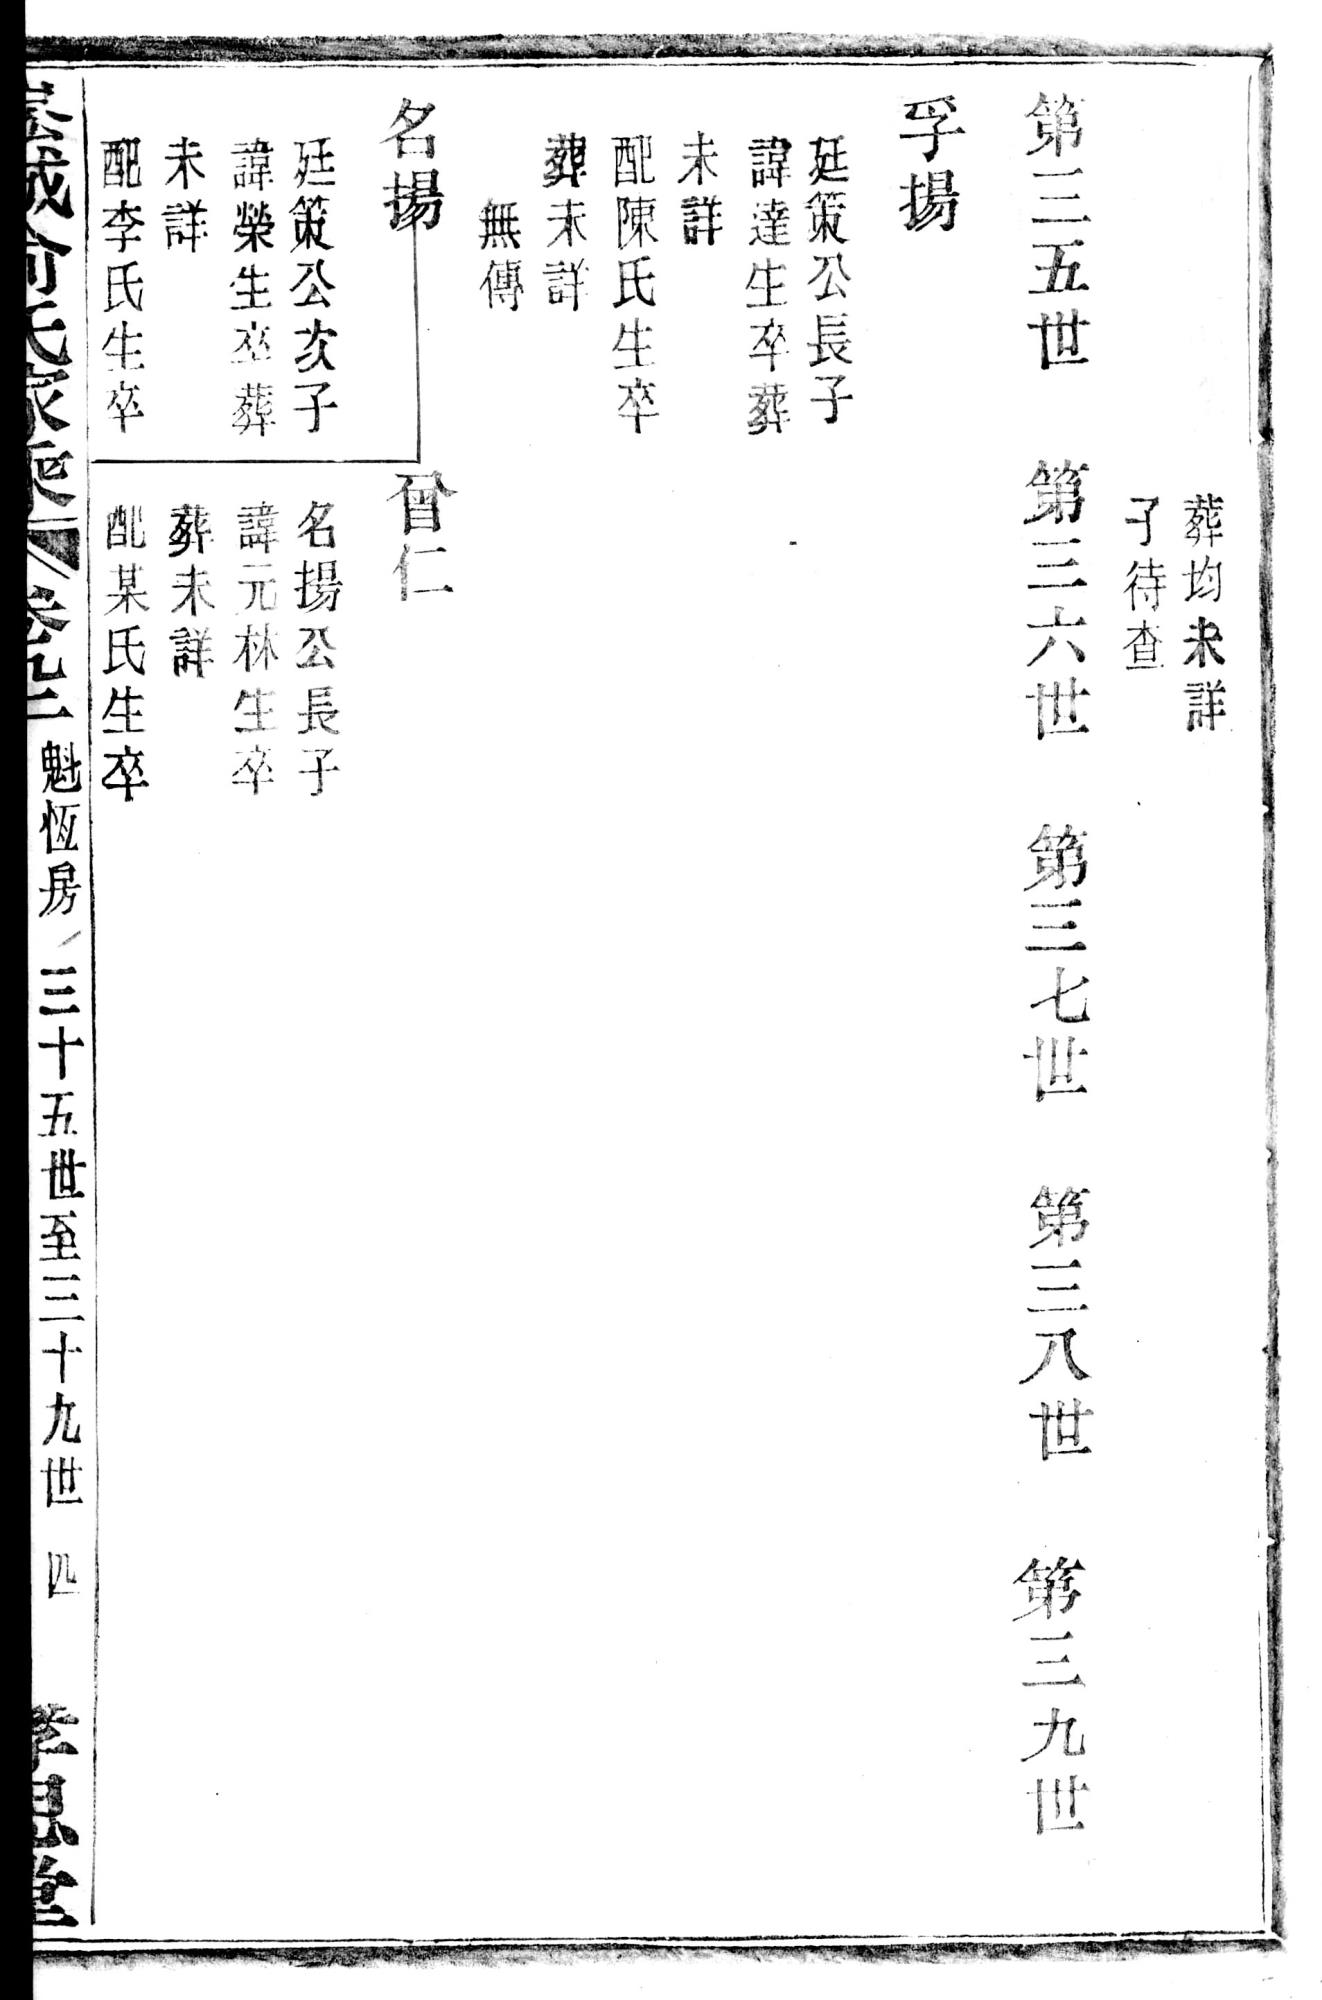 葬均未詳
子待查
第三五世
第三六世
第三七世
第三八世
第三九世
孚揚
廷策公長子
諱達生卒葬
未詳
配陳氏生卒
葬未詳
無傳
名揚
廷策公次子
諱榮生卒葬
未詳
配李氏生卒
曾仁
名揚公長子
諱元林生卒
葬未詳
配某氏生卒
氏家乘
魁恆房
三十五世至三十九世
四
孝思堂